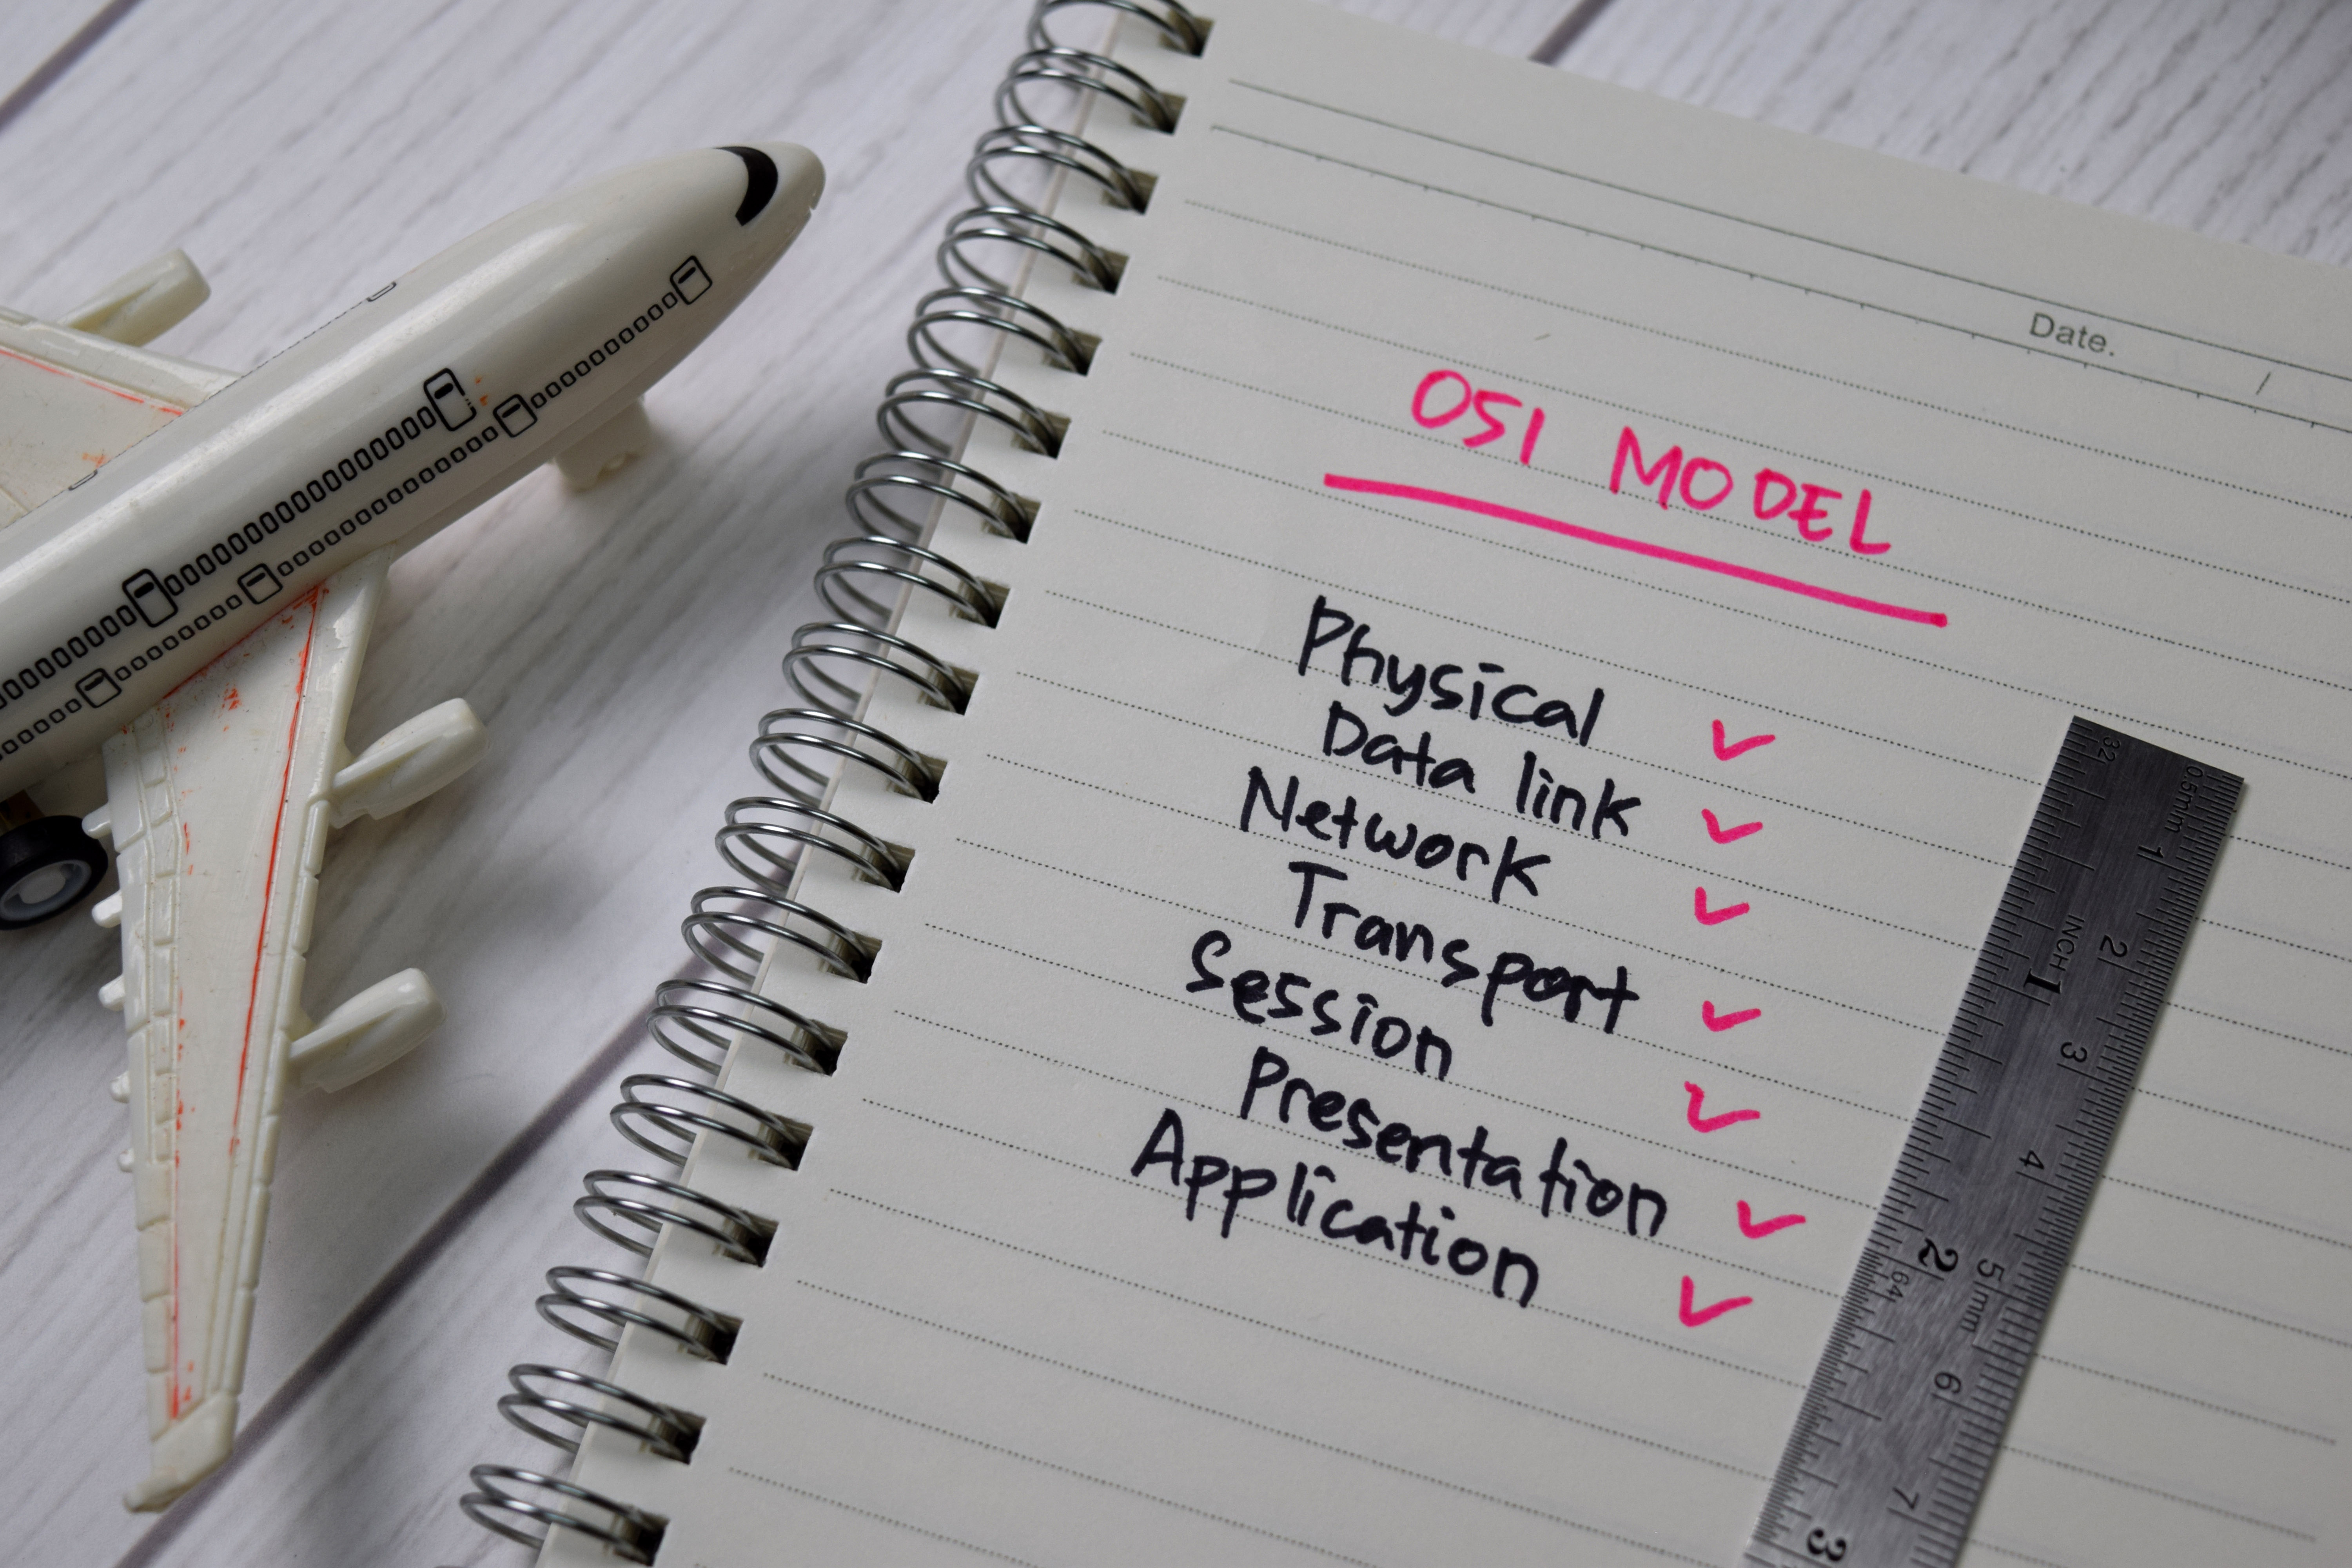 Date.
/
OSI MODEL
Physical
Data link
Network
Transport
Session
Presentation
Application
32
0.5mm
1
INCH 1
2
3
4
2
64
5 mm
6
7
3